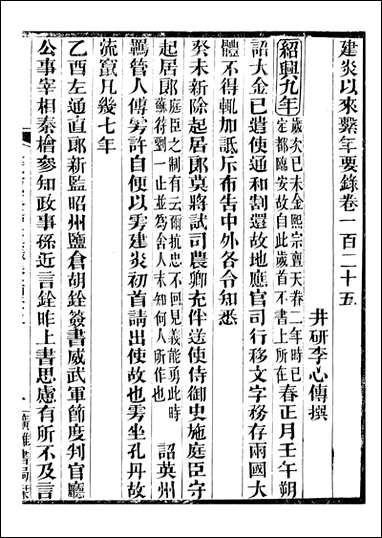 建炎以來繫年要錄卷一百二十五
井研李心傳撰
紹興九年歲次己未金熙宗亶天眷二年時已定都臨安故自此歲首不書上所在春正月壬午朔
詔大金已遣使通和割還故地應官司行移文字務存兩國大
體不得輒加詆斥布告中外各令知悉
癸未新除起居郎莫將試司農卿充伴送使侍御史施庭臣守
起居郎庭臣之制有云爾抗忠不回見義能勇此時蘇符劉一止並為舍人未知何人所作也詔英州
羈管人傅雱許自便以雱建炎初首請出使故也雱坐孔丹故
流竄凡幾七年
乙酉左通直郎新監昭州鹽倉胡銓簽書威武軍節度判官廳
公事宰相秦檜參知政事孫近言銓昨上書思慮有所不及言